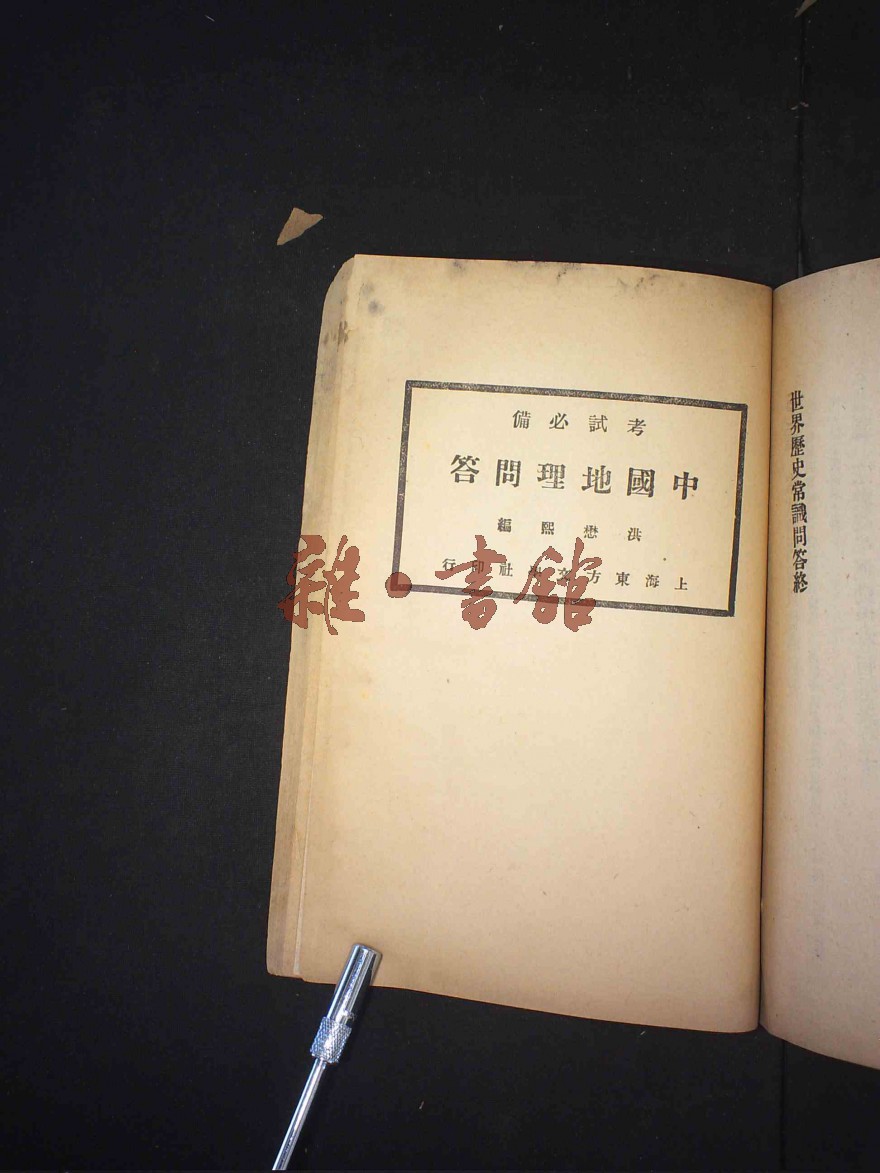 世界歷史常識問答終
考試必備
中國地理問答
洪懋熙編
上海東方文社印行
雜·書館